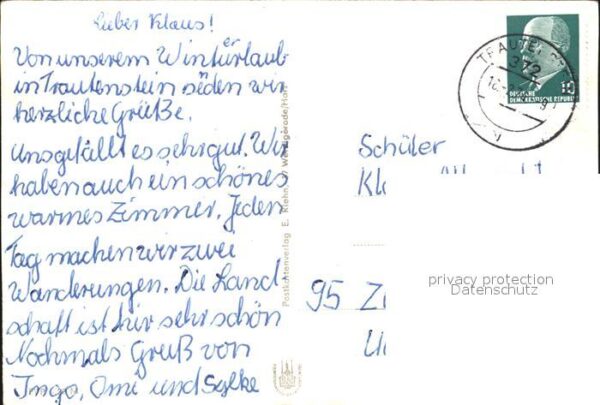 Lieber Klaus!
Von unserem Winterurlaub
in Trautenstein säden wir
herzliche Grüße.
Uns gefällt es sehr gut. Wir
haben auch ein schönes
warmes Zimmer. Jeden
Tag machen wir zwei
Wanderungen. Die Land-
schaft ist hir sehr schön
Nochmals Gruß von
Ingo, Omi und Sylke
Postkartenverlag E. Riehn, Wernigerode/Harz
TRAUTEN
372
10
DEUTSCHE
DEMOKRATISCHE REPUBLIK
Schüler
Kl
95 Z
privacy protection
Datenschutz